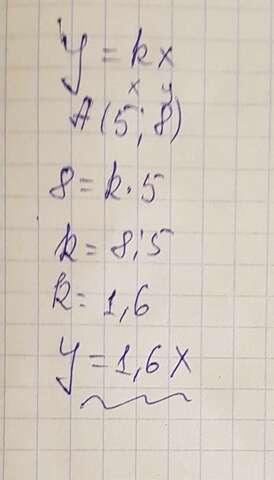 y = kx
x y
A(5; 8)
8 = k · 5
k = 8:5
k = 1,6
y = 1,6x